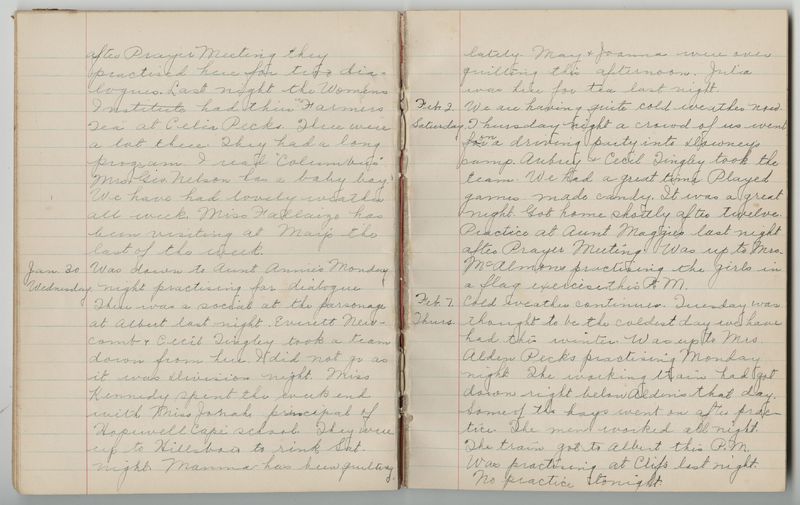 after Prayer Meeting they
practised here for two dia-
logues. Last night the Womens
Institute had their "Farmers
Tea" at Celia Pecks. There were
a lot there. They had a long
program. I read "Columbus"
Mrs. Geo Nelson has a baby boy.
We have had lovely weather
all week. Miss has
been visiting at Maip the
last of the week.
Jan. 30 Was down to Aunt Annie's Monday
Wednesday night practising for dialogue
There was a social at the parsonage
at Albert last night. Everett New-
comb & Cecil Tingley took a team
down from here. I did not go as
it was division night. Miss
Kennedy spent the week end
with Miss Jonah principal of
Hopewell Cape school. They were
up to Hillsboro to rink Sat.
night. Mamma has been quilting
lately. May & Joanna were over
quilting this afternoon. Julia
was here for tea last night.
Feb. 2. We are having quite cold weather now.
Saturday. Thursday night a crowd of us went
for a driving party into Downeys
camp. Aubrey & Cecil Tingley took the
team. We had a great time. Played
games made candy. It was a great
night. Got home shortly after twelve.
Practice at Aunt Maggies last night
after Prayer Meeting. Was up to Mrs.
McAlmons practising the girls in
a flag exercise this P.M.
Feb. 7. Cold weather continues. Tuesday was
Thurs. thought to be the coldest day we have
had this winter. Was up to Mrs.
Alden Pecks practising Monday
night. The working train had got
down right below Aldens that day.
Some of the boys went on after prac-
tice. The men worked all night.
The train got to Albert this P.M.
Was practising at Clifs last night.
No practice tonight.